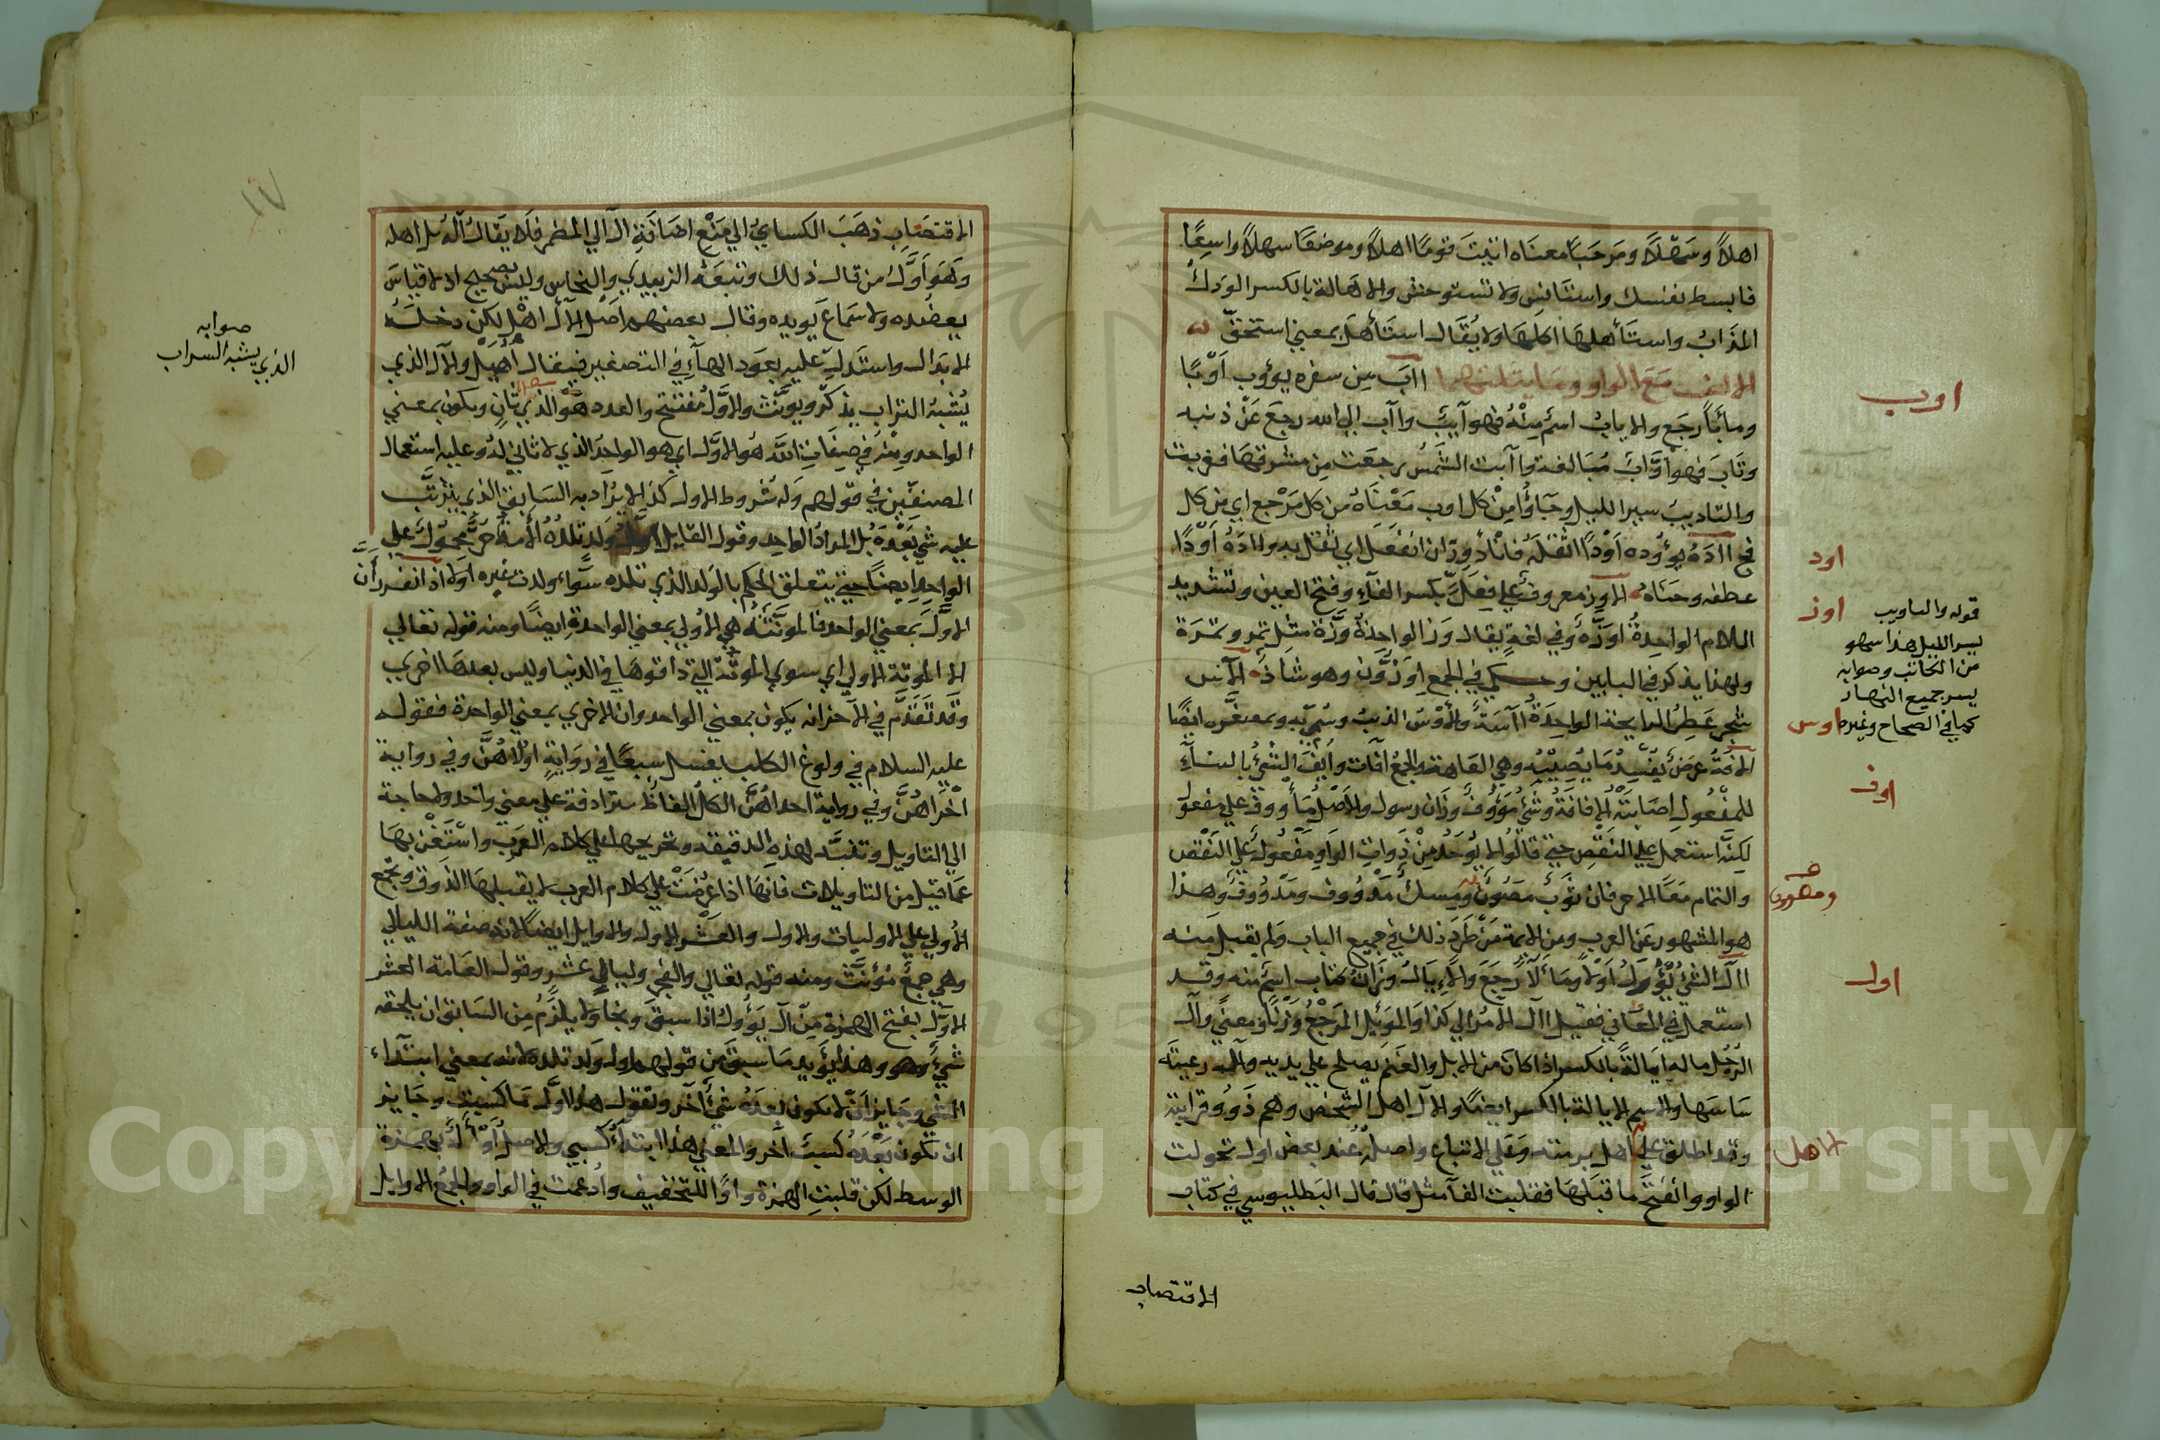 اهلا وسهلا ومرحبا معناه اتيت قوما اهلا وموضعا سهلا واسعا
فابسط نفسك واستانس ولا تستوحش والاهالة بالكسر الودك
المذاب واستأهلها اكلها ولا يقال استأهل بمعني استحق
الالف مع الواو وما يثلثهما اآب من سفره يؤوب اوبا
ومأبا رجع والاياب اسم منه فهو آيب واآب الي الله رجع عن ذنبه
وتاب فهو اواب مبالغة واآبت الشمس رجعت من مشرقها فغربت
والتاديب سير الليل وجاؤا من كل اوب معناه من كل مرجع اي من كل
فج اآده يؤده اودا اثقله فانأد وزان انفعل اي ثقل به واآده اودا
عطفه وحناه الاوز معروف علي فعل بكسر الفاء وفتح العين وتشديد
اللام الواحدة اوزة وفي لغة يقال وز الواحدة وزة مثل تمر وتمرة
ولهذا يذكر في البابين وحكي في الجمع اوزون وهو شاذ الآس
شجر عطر الرايحة الواحدة اآسة والاوس الذيب وسمي به وبمصغره ايضا
الافة عرض يفسد ما يصيبه وهي العاهة والجمع اآفات وايف الشئ بالبناء
للمفعول اصابته الافة وشئ مؤوف وزان رسول والاصل مأووف علي مفعول
لكنه استعمل علي النقص حتي قالوا لا يوجد من ذوات الواو مفعول علي النقص
والتمام معا الا حرفان ثوب مصون ومسك مدووف ومدووف وهذا
هو المشهور عن العرب ومن الايمة من طرد ذلك في جميع الباب ولم يقبل منه
اآل الشئ يؤول اولا ومآلا رجع والايال وزان كتاب اسم منه وقد
استعمل في المعاني فقيل اآل الامر الي كذا والموئل المرجع وزنا ومعني وآل
الرجل ماله ايالة بالكسر اذا كان من الابل والغنم يصلح علي يديه وآل رعيته
ساسها والاسم الايالة بالكسر ايضا والآل اهل الشخص وهم ذوو قرابته
وقد اطلق علي اهل بيته وعلي الاتباع واصله عند بعض اول تحركت
الواو وانفتح ما قبلها فقلبت الفا مثل قال قال البطليوسي في كتاب
الاقتصاب
اوب
اود
اوز
قوله والتاويب
سير الليل هذا سهو
من الكاتب وصوابه
سير جميع النهار
كما في الصحاح وغيره
اوس
اوف
ومصوون
اول
الاهل
الاقتصاب ذهب الكسايي الي منع اضافة آل الي المظمر فلا يقال آله بل اهله
وهو اول من قال ذلك وتبعه الزبيدي والنحاس وليس بصحيح اذ لا قياس
يعضده ولا سماع يويده وقال بعضهم اصل الآل اهل لكن دخله
الابدال واستدل عليه بعود الهاء في التصغير فيقال اهيل والآل الذي
يشبه التراب يذكر ويونث والاول مفتتح والعدد هو الذي له ثان ويكون بمعني
الواحد ومنه في صفات الله هو الاول اي هو الواحد الذي لا ثاني له وعليه استعمال
المصنفين في قولهم وله شروط الاول كذا لا يراد به السابق الذي يترتب
عليه شئ بعده بل المراد الواحد وقول القايل اول ولد تلده الامة حر محمول علي
الواحد ايضا حتي يتعلق الحكم بالولد الذي تلده سواء ولدت غيره اولا اذا تقرر ان
الاول بمعني الواحد فالمونثه هي الاولي بمعني الواحدة ايضا ومنه قوله تعالي
الا الموتة الاولي اي سوي الموتة التي ذاقوها في الدنيا وليس بعدها اخري
وقد تقدم في الاخر انه يكون بمعني الواحد وان الاخري بمعني الواحدة فقوله
عليه السلام في ولوغ الكلب يغسل سبعا في رواية اولاهن وفي رواية
اخراهن وفي رواية احداهن الكل الفاظ مترادفة علي معني واحد ولا حاجة
الي التاويل وتنبه لهذه الدقيقة وتخريجها علي كلام العرب واستغن بها
عما قيل من التاويلات فانها اذا عرضت علي كلام العرب لا يقبلها الذوق وتجمع
الاولي علي الاوليات والاول والعشر الاول والاوايل ايضا لانه صفة الليالي
وهي جمع مؤنث ومنه قوله تعالي والفجر وليال عشر وقول العامة العشر
الاول بفتح الهمزة من آل يؤول اذا سبق وجا ولا يلزم من السابق ان يلحقه
شئ وهذا يؤيد ما سبق من قولهم اول ولد تلده لانه بمعني ابتداء
الشئ وجايز ان لا يكون بعده شئ آخر وتقول هذا اول ما كسبت وجايز
ان يكون بعده كسب آخر والمعني هذا ابتداء كسبي والاصل اوأل بهمزة
الوسط لكن قلبت الهمزة واوا للتخفيف وادغمت في الواو والجمع الاوايل
صوابه
الذي يشبه السراب
١٧